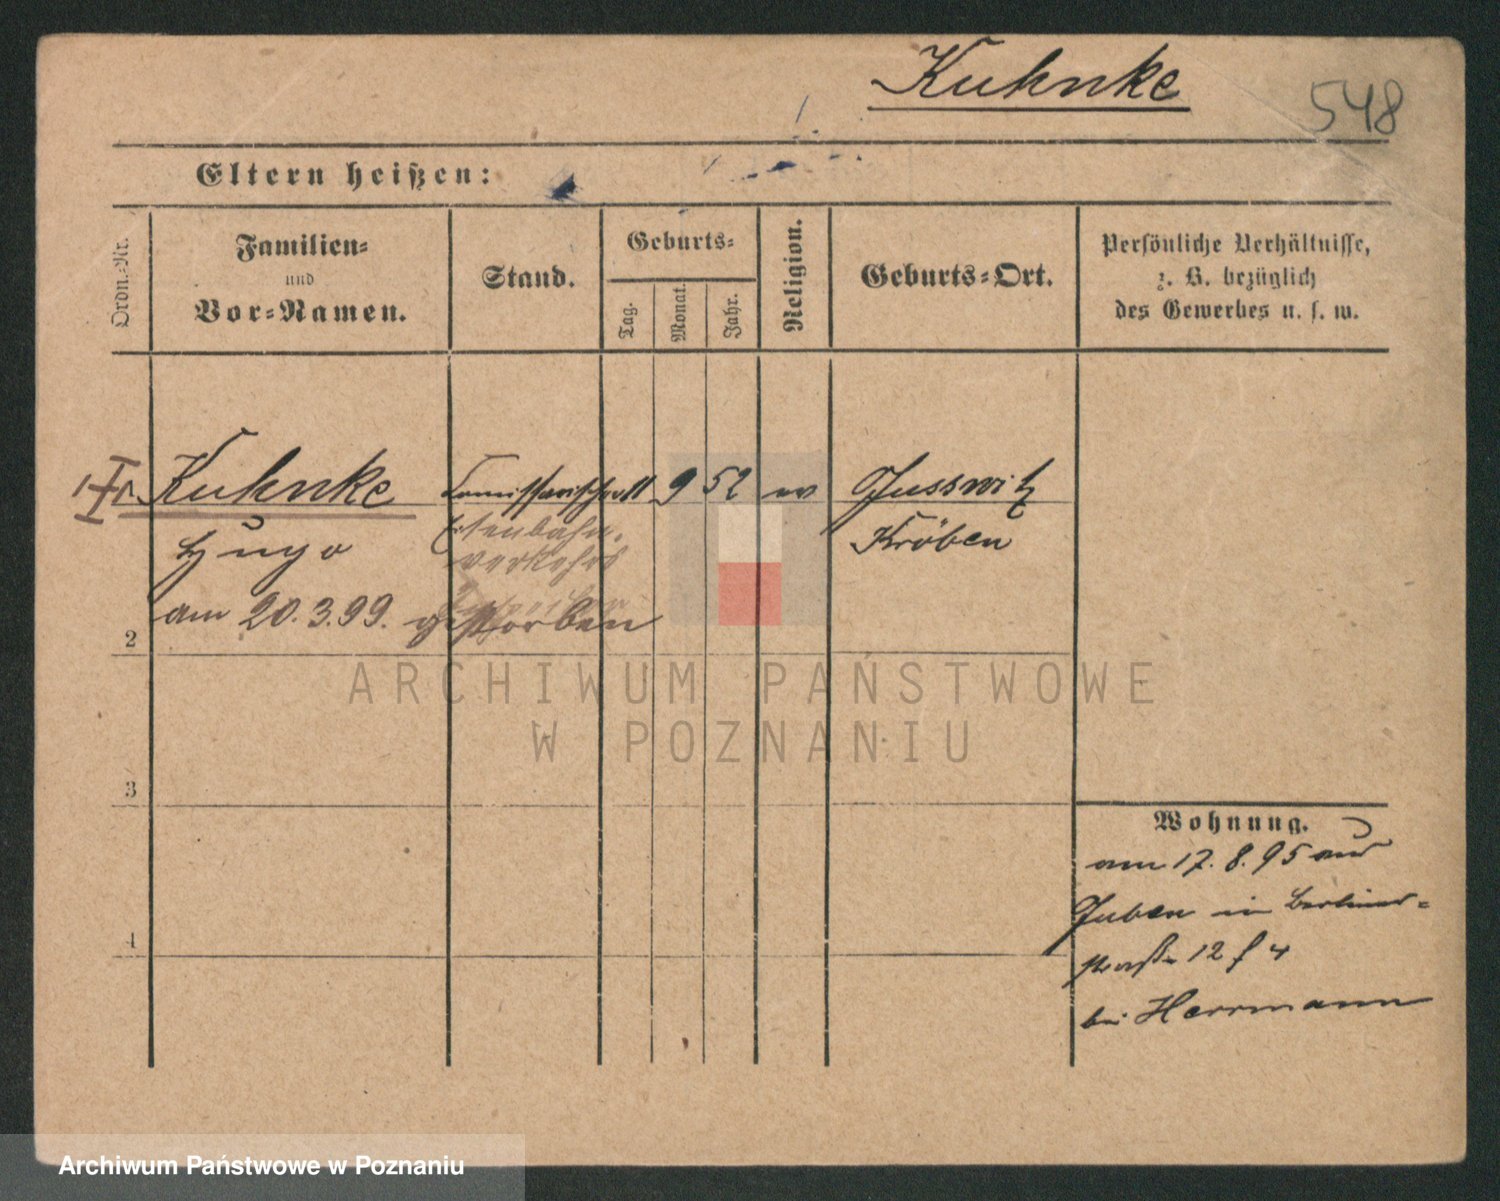 Kuhnke
548
Eltern heißen:
Ordn.-Nr.
Familien-
und
Vor-Namen.
Stand.
Geburts-
Tag.
Monat.
Jahr.
Religion.
Geburts-Ort.
Persönliche Verhältnisse,
z. B. bezüglich
des Gewerbes u. s. w.
Kuhnke 9 52 ev
Kröben
Hugo
Eisenbahn-
verkehrs
am 20.3.99. gestorben
2
3
4
ARCHIWUM PAŃSTWOWE
W POZNANIU
Wohnung.
am 17. 8. 95 aus
Guben in Berliner-
straße 12
bei Herrmann
Archiwum Państwowe w Poznaniu